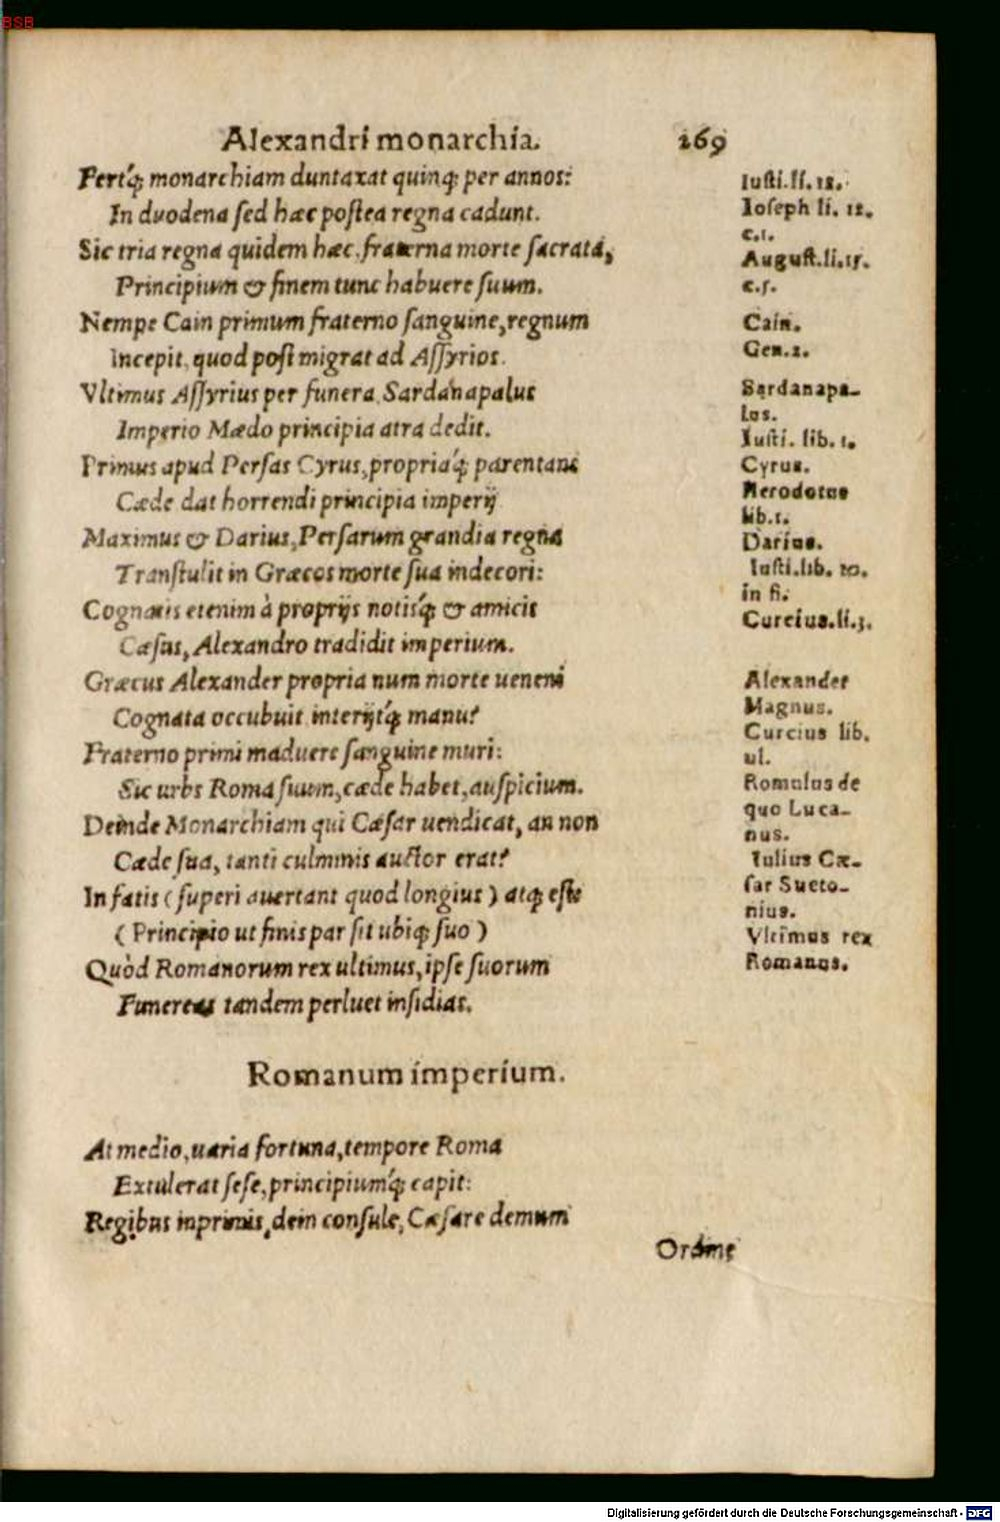 BSB
Alexandri monarchia. 269
Fertq́; monarchiam duntaxat quinq; per annos:
In duodena sed hæc postea regna cadunt.
Sic tria regna quidem hæc, fraterna morte sacrata,
Principium & finem tunc habuere suum.
Nempe Cain primum fraterno sanguine, regnum
Incepit, quod post migrat ad Assyrios.
Vltimus Assyrius per funera Sardanapalus
Imperio Mædo principia atra dedit.
Primus apud Persas Cyrus, propriaq́; parentans
Cæde dat horrendi principia imperij
Maximus & Darius, Persarum grandia regna
Transtulit in Græcos morte sua indecori:
Cognatis etenim à proprijs notisq́; & amicis
Cæsus, Alexandro tradidit imperium.
Græcus Alexander propria num morte ueneni
Cognata occubuit interijtq́; manu?
Fraterno primi maduere sanguine muri:
Sic urbs Roma suum, cæde habet, auspicium.
Deinde Monarchiam qui Cæsar uendicat, an non
Cæde sua, tanti culminis auctor erat?
In fatis (superi auertant quod longius) atq; este
(Principio ut finis par sit ubiq; suo)
Quòd Romanorum rex ultimus, ipse suorum
Funereas tandem perluet insidias.
Iusti. li. 12.
Ioseph li. 12.
c.1.
August.li.15.
c.5.
Cain.
Gen.2.
Sardanapa-
lus.
Iusti. lib. 1.
Cyrus.
Herodotus
lib.1.
Darius.
Iusti.lib. 10.
in fi.
Curcius.li.3.
Alexander
Magnus.
Curcius lib.
ul.
Romulus de
quo Luca-
nus.
Iulius Cæ-
sar Sueto-
nius.
Vltimus rex
Romanus.
Romanum imperium.
At medio, uaria fortuna, tempore Roma
Extulerat sese, principiumq́; capit:
Regibus inprimis, dein consule, Cæsare demum
Ordine
Digitalisierung gefördert durch die Deutsche Forschungsgemeinschaft - DFG